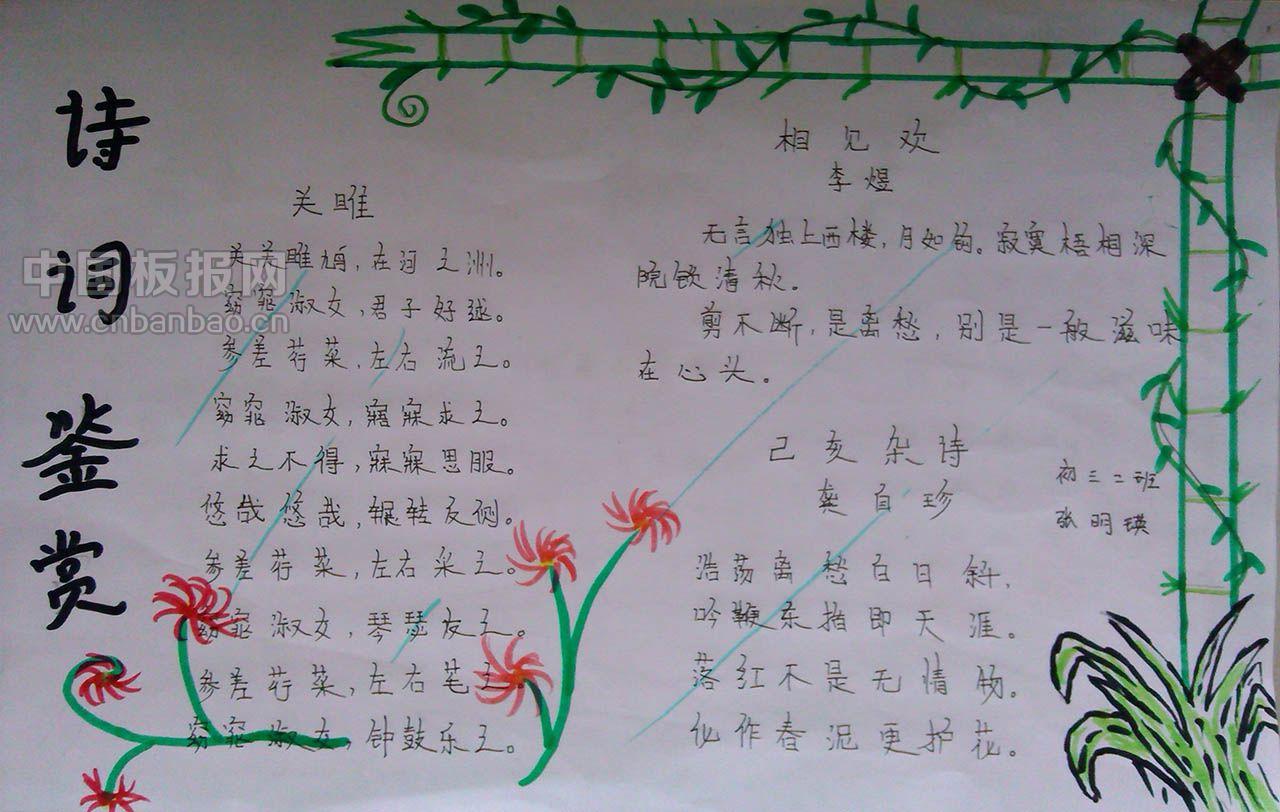 诗词鉴赏
关雎
关关雎鸠，在河之洲。
窈窕淑女，君子好逑。
参差荇菜，左右流之。
窈窕淑女，寤寐求之。
求之不得，寤寐思服。
悠哉悠哉，辗转反侧。
参差荇菜，左右采之。
窈窕淑女，琴瑟友之。
参差荇菜，左右芼之。
窈窕淑女，钟鼓乐之。
相见欢
李煜
无言独上西楼，月如钩。寂寞梧相深
院锁清秋。
剪不断，是离愁，别是一般滋味
在心头。
己亥杂诗
龚自珍
浩荡离愁白日斜，
吟鞭东指即天涯。
落红不是无情物。
化作春泥更护花。
初三二班
张明瑛
中国板报网
www.cnbanbao.cn